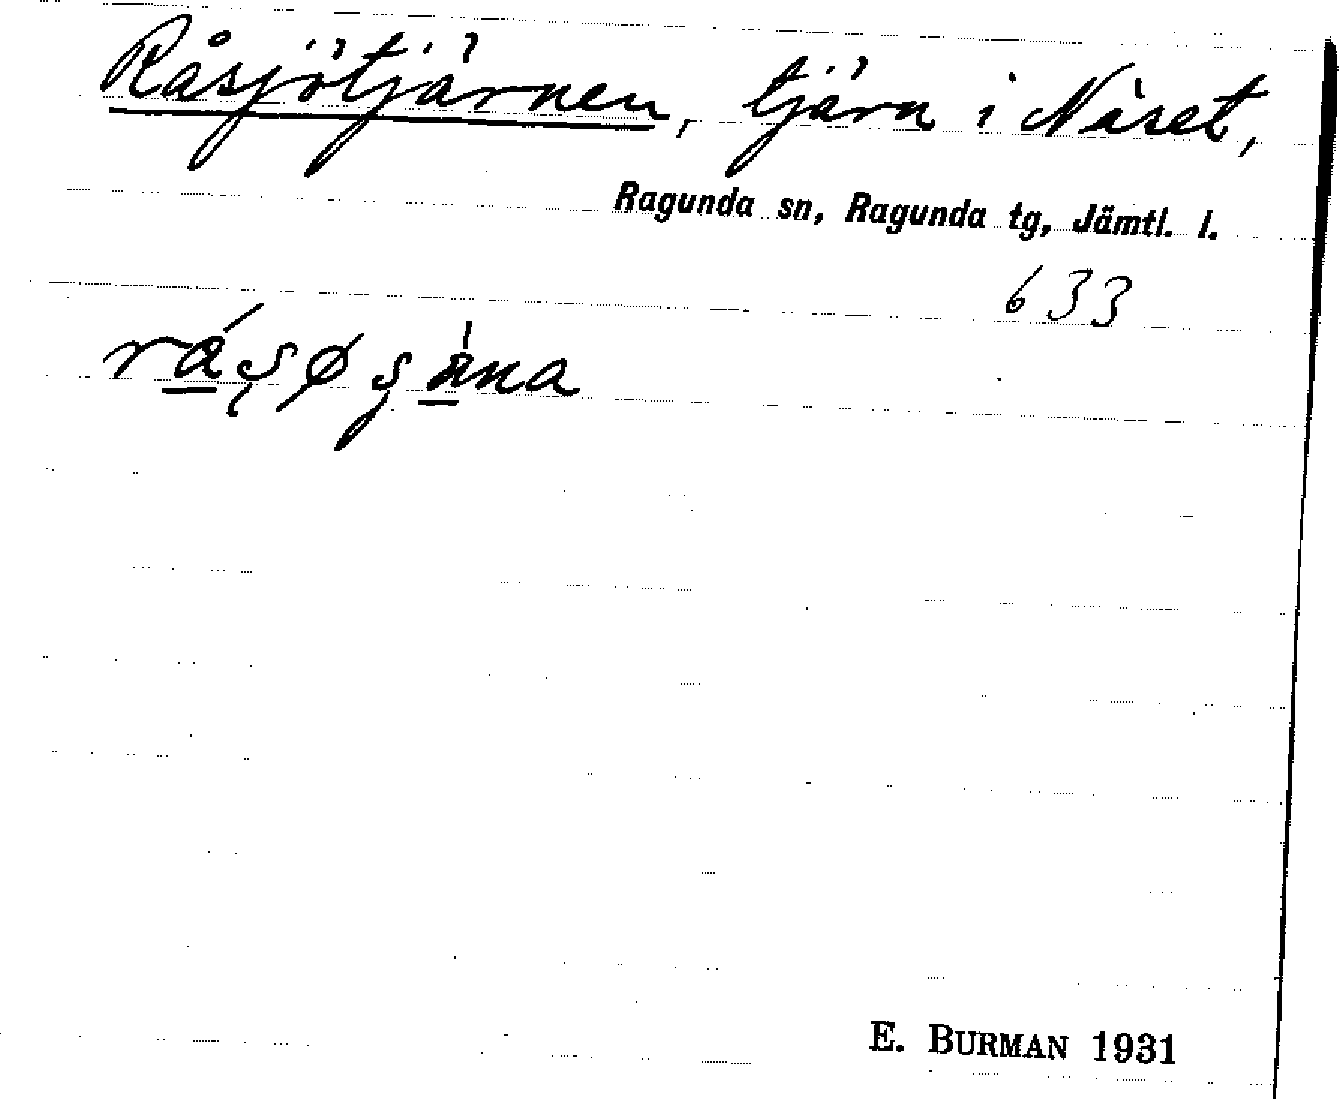 Råsjötjärnen, tjärn i Näset,
Ragunda sn, Ragunda tg, Jämtl. l.
633
E. BURMAN 1931